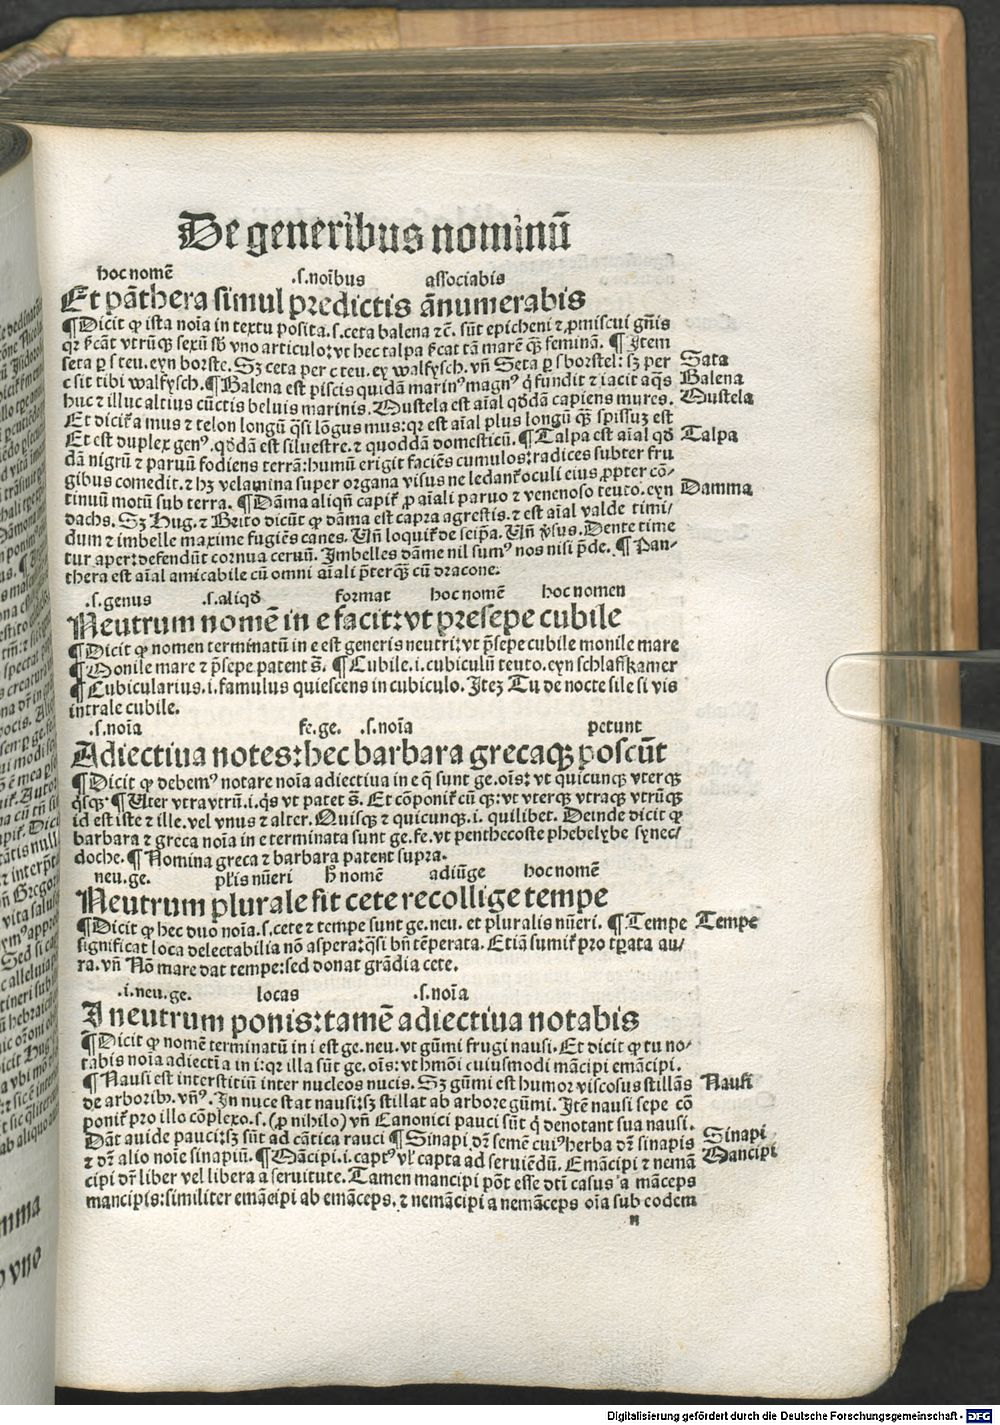 De generibus nominū
hoc nomē .s.noībus associabis
Et pāthera simul predictis ānumerabis
¶Dicit ꝙ ista noīa in textu posita.s.ceta balena ⁊c̄. sūt epicheni ⁊ ꝓmiscui gn̄is
qr̄ s̄cāt vtrūꝙ̄ sexū sb̓ vno articulo:vt hec talpa s̄cat tā marē ꝙ̄ feminā. ¶Item
seta ꝑ s teu. eyn borste. Sꝫ ceta per c teu. ey walfysch. vn̄ Seta ꝑ s borstel: sꝫ per Sata
c sit tibi walfysch.¶Balena est piscis quidā marinꝰ magnꝰ q̇ fundit ⁊ iacit aq̄s Balena
huc ⁊ illuc altius cūctis beluis marinis. Mustela est aīal qd̓dā capiens mures. Mustela
Et dicit᷑ a mus ⁊ telon longū q̄si lōgus mus:qr̄ est aīal plus longū ꝙ̄ spissuꝫ est
Et est duplex genꝰ. qd̓dā est siluestre. ⁊ quoddā domesticū. ¶Talpa est aīal qd̓ Talpa
dā nigrū ⁊ paruū fodiens terrā:humū erigit faciēs cumulos:radices subter fru
gibus comedit. ⁊ hꝫ velamina super organa visus ne ledant᷑ oculi eius ꝓpter cō⸗
tinuū motū sub terra. ¶Dāma aliqn̄ capit᷑ ꝓ aīali paruo ⁊ venenoso teuto. eyn Damma
dachs. Sꝫ Hug. ⁊ Brito dicūt ꝙ dāma est capra agrestis. ⁊ est aīal valde timi/
dum ⁊ imbelle maxime fugiēs canes. Vn̄ loquit᷑ de seip̄a. Vn̄ v̓sus. Dente time
tur aper:defendūt cornua ceruū. Imbelles dāme nil sumꝰ nos nisi p̄de. ¶Pan⸗
thera est aīal amicabile cū omni aīali p̄terꝙ̄ cū dracone.
.s.genus .s.aliqd̓ format hoc nomē hoc nomen
Neutrum nomē in e facit:vt presepe cubile
¶Dicit ꝙ nomen terminatū in e est generis neutri:vt p̄sepe cubile monile mare
¶Monile mare ⁊ p̄sepe patent s̄. ¶Cubile.i.cubiculū teuto.eyn schlaffkamer
¶Cubicularius.i.famulus quiescens in cubiculo. Iteꝫ Tu de nocte sile si vis
intrale cubile.
.s.noīa fe.ge. .s.noīa petunt
Adiectiua notes:hec barbara grecaqꝫ poscūt
¶Dicit ꝙ debemꝰ notare noīa adiectiua in e q̄ sunt ge.oīs: vt quicunqꝫ vterqꝫ
q̇sqꝫ.¶Vter vtra vtrū.i.q̇s vt patet s̄. Et cōponit᷑ cū qꝫ: vt vterqꝫ vtraqꝫ vtrūqꝫ
id est iste ⁊ ille. vel vnus ⁊ alter. Quisqꝫ ⁊ quicunqꝫ.i. quilibet. Deinde dicit ꝙ
barbara ⁊ greca noīa in e terminata sunt ge.fe.vt penthecoste phebe lybe synec/
doche. ¶Nomina greca ⁊ barbara patent supra.
neu.ge. pl̓is nūeri h̓ nomē adiūge hoc nomē
Neutrum plurale fit cete recollige tempe
¶Dicit ꝙ hec duo noīa.s.cete ⁊ tempe sunt ge.neu. et pluralis nūeri. ¶Tempe Tempe
significat loca delectabilia nō aspera:q̄si bn̄ tēperata. Etiā sumit᷑ pro tꝑata au/
ra. vn̄ Nō mare dat tempe:sed donat grādia cete.
.i.neu.ge. locas .s.noīa
I neutrum ponis:tamē adiectiua notabis
¶Dicit ꝙ nomē terminatū in i est ge.neu. vt gūmi frugi nausi. Et dicit ꝙ tu no⸗
tabis noīa adiectīa in i:qr̄ illa sūt ge.oīs:vt hmōi cuiusmodi mācipi emācipi.
¶Nausi est interstitiū inter nucleos nucis. Sꝫ gūmi est humor viscosus stillās Nausi
de arboribꝰ. vn̄ꝰ. In nuce stat nausi:sꝫ stillat ab arbore gūmi. Itē nausi sepe cō
ponit᷑ pro illo cōplexo.s.(ꝓ nihilo) vn̄ Canonici pauci sūt q̇ denotant sua nausi.
Dāt auide pauci:sꝫ sūt ad cātica rauci ¶Sinapi dr̄ semē cuiꝰ herba dr̄ sinapis Sinapi
⁊ dr̄ alio noīe sinapiū.¶Mācipi.i.captꝰ vl̓ capta ad seruiēdū. Emācipi ⁊ nemā Mancipi
cipi dr̄ liber vel libera a seruitute. Tamen mancipi pōt esse dtī casus a māceps
mancipis:similiter emācipi ab emāceps. ⁊ nemācipi a nemāceps oīa sub eodem
n
Digitalisierung gefördert durch die Deutsche Forschungsgemeinschaft - DFG